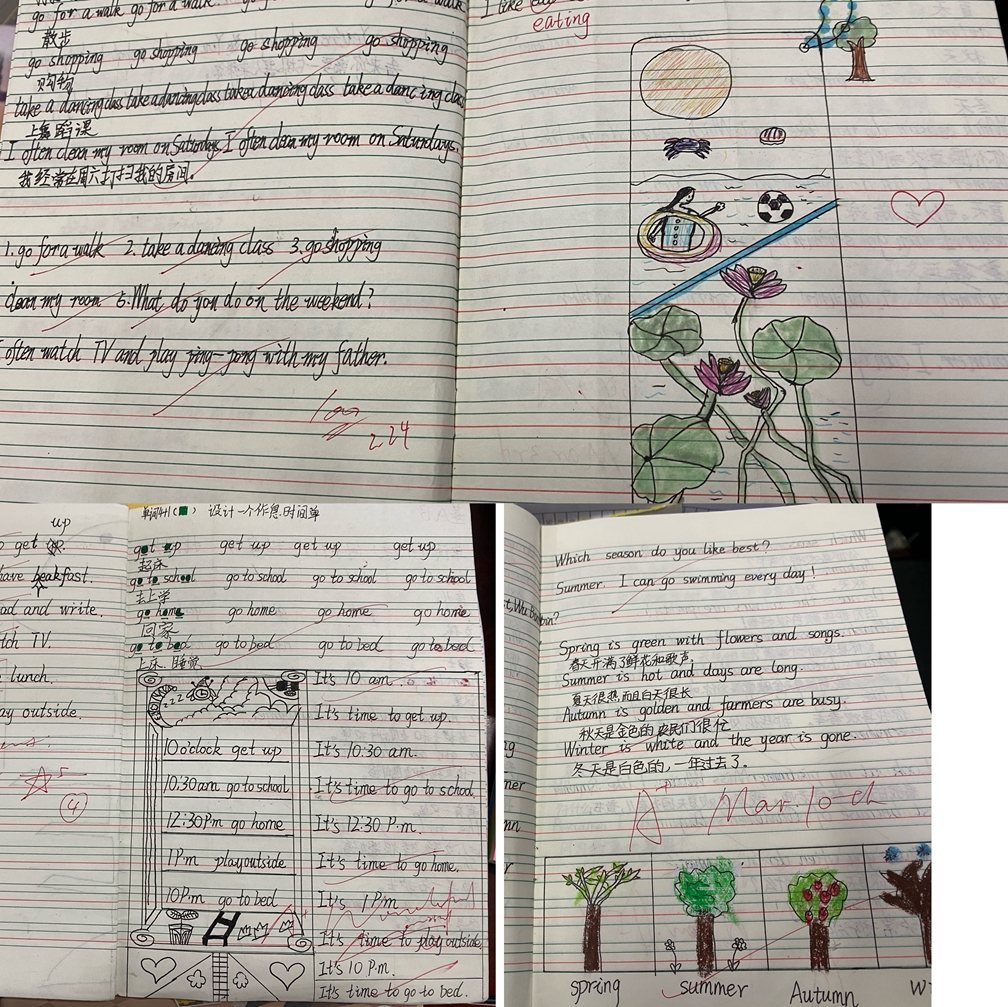 go for a walk go for a walk. go for a walk
散步
go shopping go shopping go shopping go shopping
购物
take a dancing class take a dancing class take a dancing class take a dancing class
上舞蹈课
I often clean my room on Saturdays. I often clean my room on Saturdays.
我经常在周六打扫我的房间.
1. go for a walk 2. take a dancing class 3. go shopping
clean my room 5. What do you do on the weekend?
often watch TV and play ping-pong with my father.
100
2.24
I like
eating
up
get
have breakfast.
and write.
TV.
lunch.
outside.
5
4
设计一个作息时间单
get up get up get up get up
起床
go to school go to school go to school go to school
去上学
go home go home go home go home
回家
go to bed go to bed go to bed go to bed
上床,睡觉
zzz
10 o'clock get up
10:30 am go to school
12:30 P.m go home
1 P.m play outside
10 P.m go to bed
It's 10 am.
It's time to get up.
It's 10:30 am.
It's time to go to school.
It's 12:30 P.m.
It's time to go home.
It's 1 P.m
It's time to play outside.
It's 10 P.m.
It's time to go to bed.
Which season do you like best?
Summer. I can go swimming every day!
Spring is green with flowers and songs.
春天开满了鲜花和歌声.
Summer is hot and days are long.
夏天很热,而且白天很长
Autumn is golden and farmers are busy.
秋天是金色的,农民们很忙
Winter is white and the year is gone.
冬天是白色的,一年过去了.
A+ Mar. 10th
spring summer Autumn W